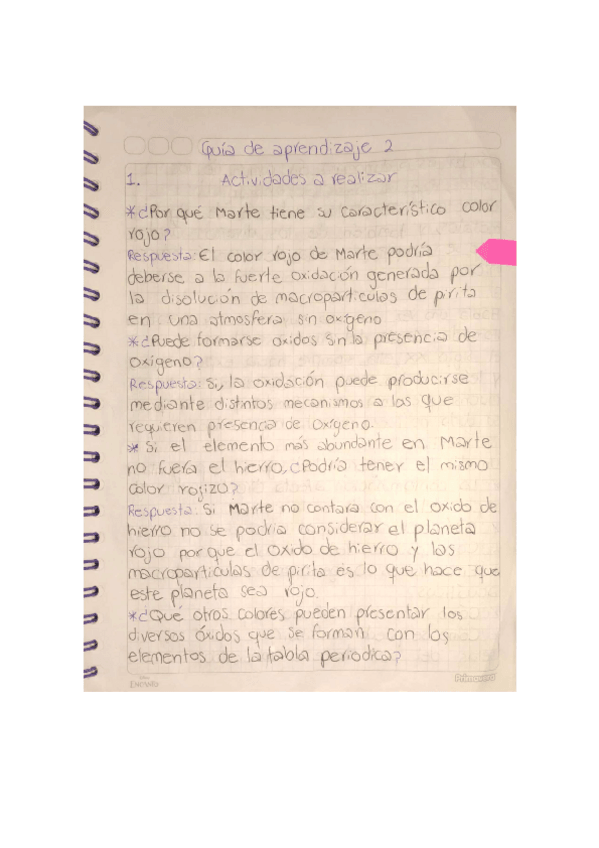 Guía de aprendizaje 2
1. Actividades a realizar
*¿Por qué Marte tiene su característico color
rojo?
Respuesta: El color rojo de Marte podría
deberse a la fuerte oxidación generada por
la disolución de macroparticulas de pirita
en una atmosfera sin oxígeno
*¿Puede formarse oxidos sin la presencia de
oxigeno?
Respuesta: Si, la oxidación puede producirse
mediante distintos mecanismos a los que
requieren presencia de oxígeno.
* Si el elemento más abundante en Marte
no fuera el hierro, ¿Podría tener el mismo
color rojizo?
Respuesta: Si Marte no contara con el oxido de
hierro no se podria considerar el planeta
rojo por que el oxido de hierro y las
macroparticulas de pirita es lo que hace que
este planeta sea rojo.
*¿Qué otros colores pueden presentar los
diversos óxidos que se forman con los
elementos de la tabla periodica?
Primavera